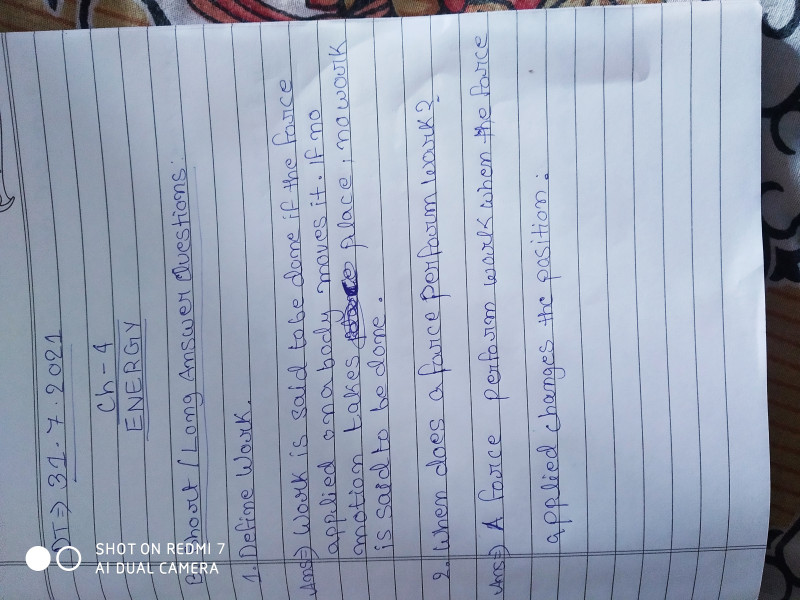 DT⇒ 31.7.2021
Ch-4
ENERGY
Short / Long Answer Questions:
1. Define Work.
Ans⇒ Work is said to be done if the force
applied on a body moves it. If no
motion takes place, no work
is said to be done.
2. When does a force perform work?
Ans⇒ A force perform work when the force
applied changes the position.
SHOT ON REDMI 7
AI DUAL CAMERA